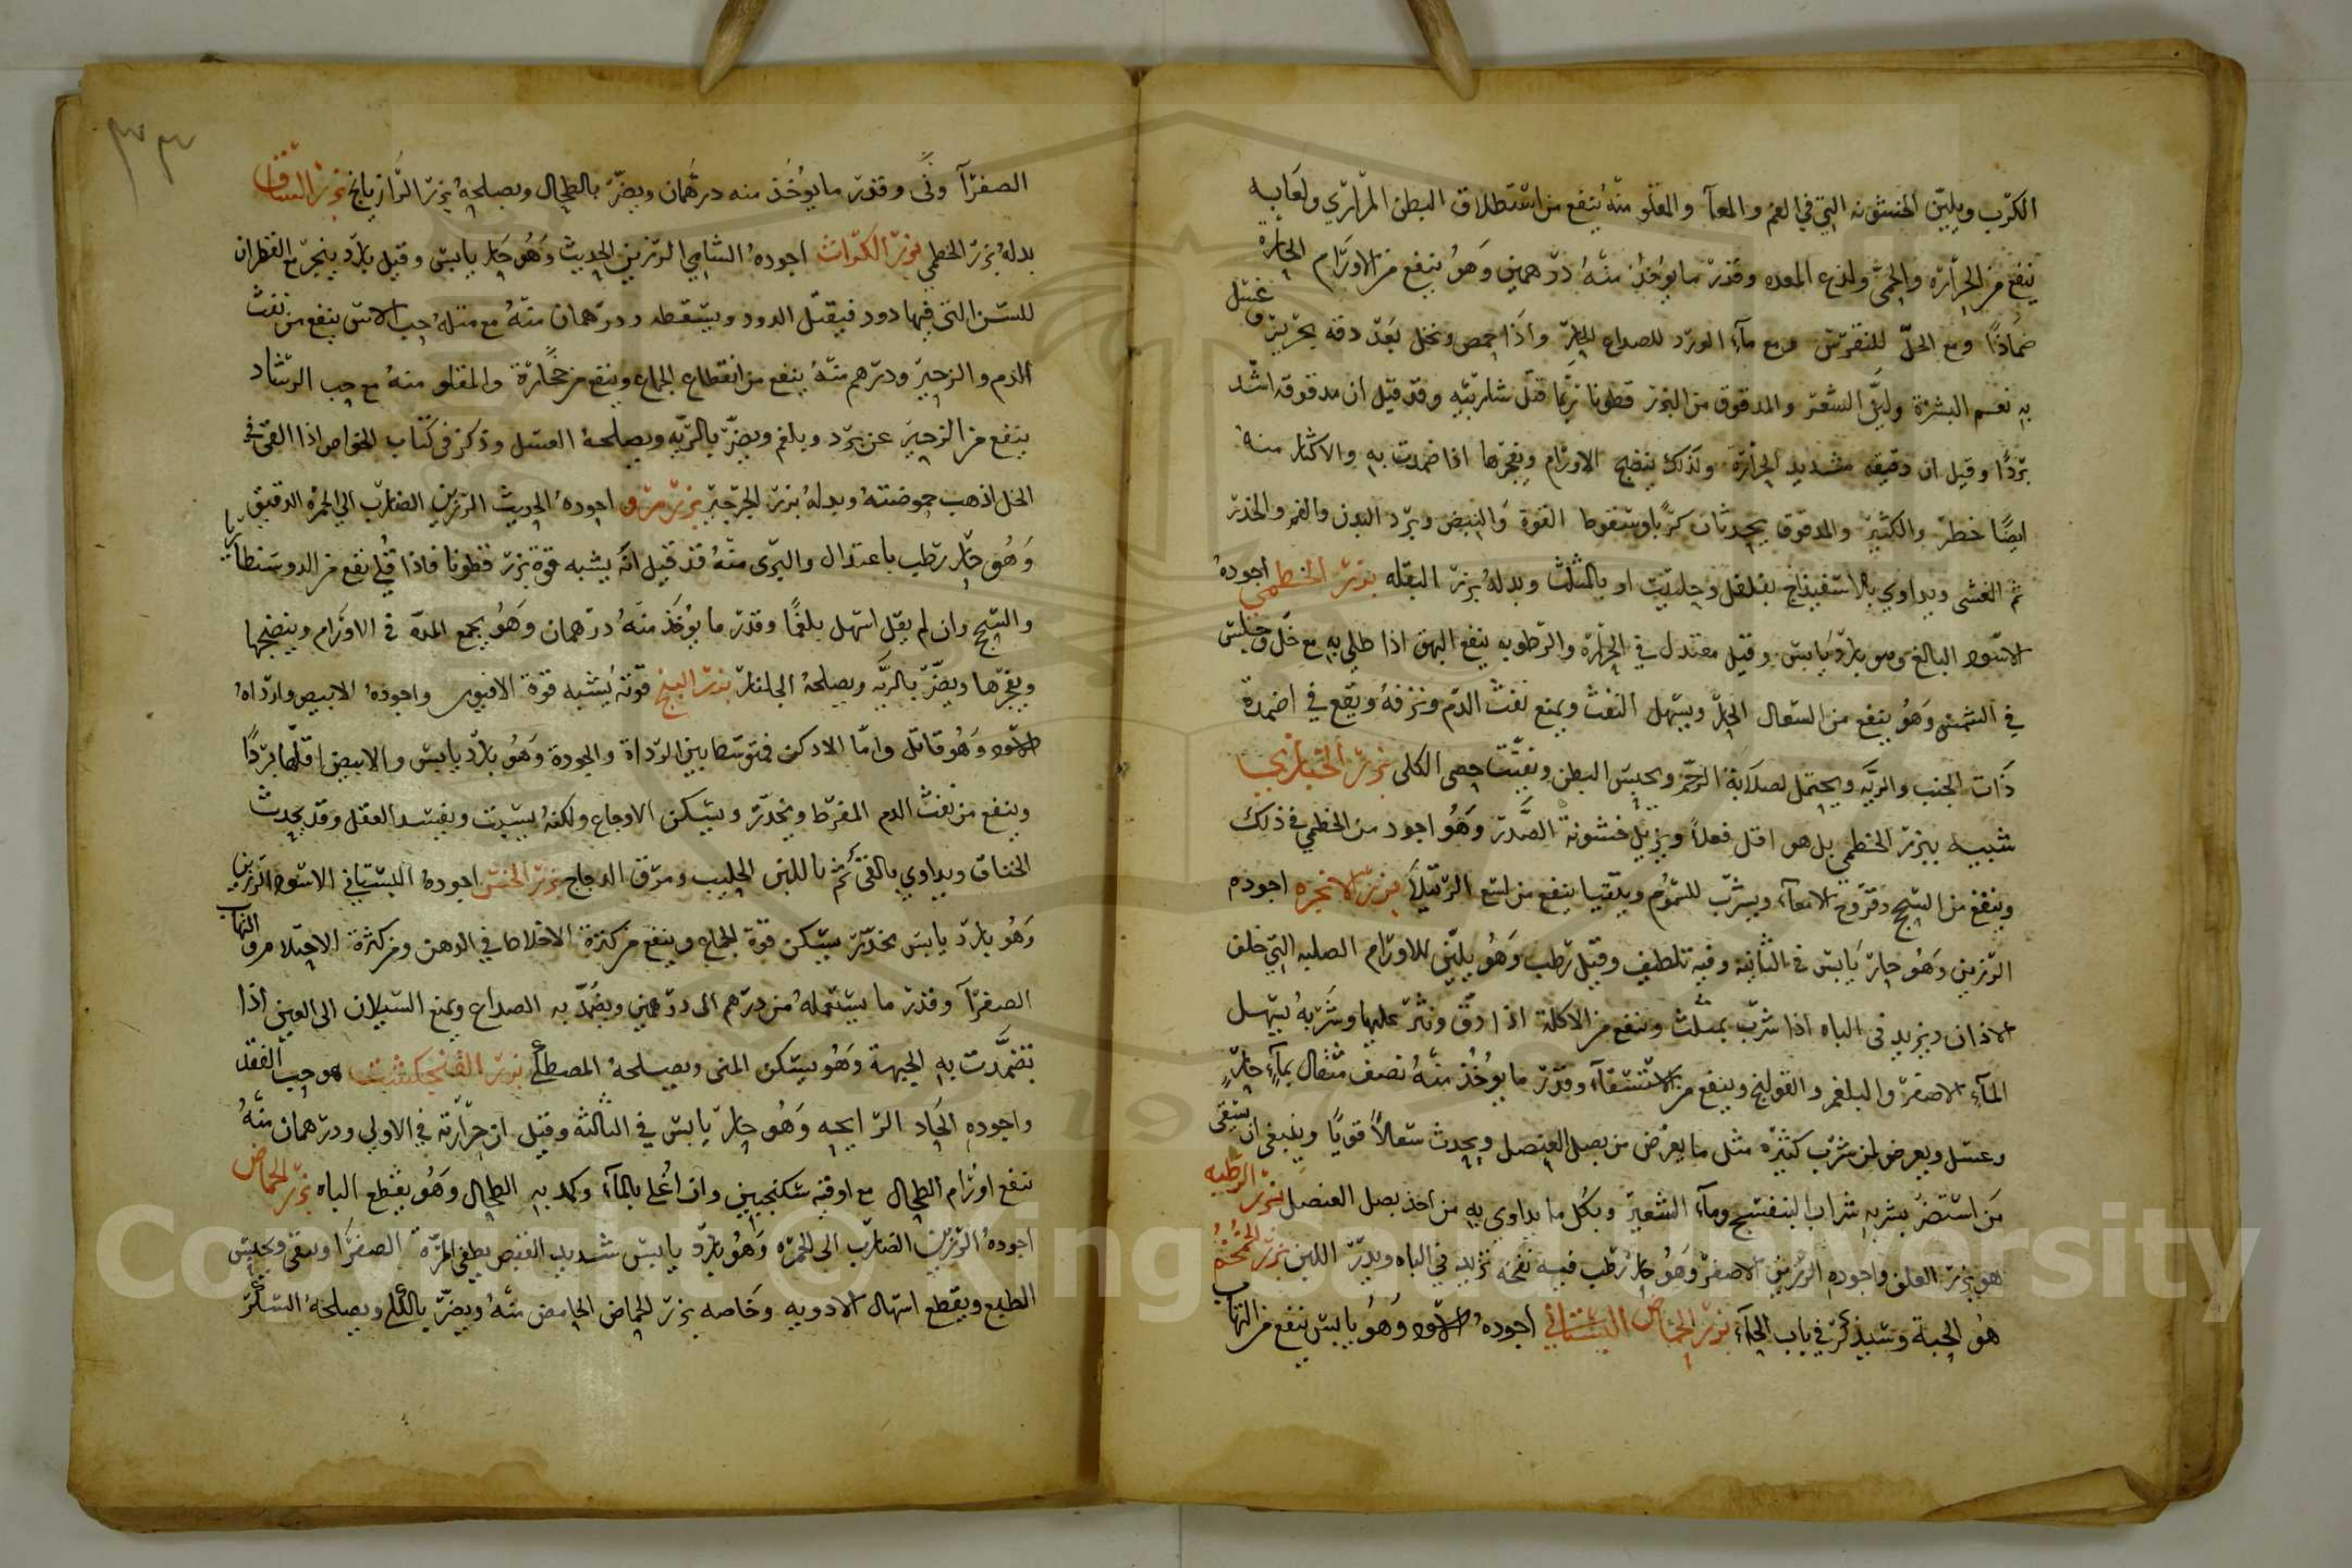 الكرب ويلين الخشونه التي في الفم والمعآ والمقلو منه ينفع من استطلاق البطن المراري ولعابه
ينفع من الحرارة والحمى ولذع المعده وقدر ما يوخذ منه درهمين وهو ينفع من الاورام الحاره
ضمادًا ومع الخل للنقرس ومع مآء الورد للصداع الحار واذا حمص ونخل بعد دقه بحريره وغسل
به نعم البشرة ولين الشعر والمدقوق من البزر قطونا ربما قتل شاربيه وقد قيل ان مدقوقه اشد
بردًا وقيل ان دقيقه شديد الحرارة ولذلك ينضج الاورام ويفجرها اذا ضمدت به والاكثار منه
ايضًا خطر والكثير والمدقوق يحدثان كربا وسقوط القوة والنبض وبرد البدن والغم والخدر
ثم الغشى ويداوي بالاسفيذاج بفلفل وحلتيت او بالمثلث وبدله بزر البقله بزر الخطمي اجوده
الاسود البالغ وهو بارد يابس وقيل معتدل في الحرارة والرطوبه ينفع البهق اذا طلي به مع خل وجلس
في الشمس وهو ينفع من السعال الحار ويسهل النفث ويمنع نفث الدم ونزفه ويقع في اضمدة
ذات الجنب والريه ويحتمل لصلابة الرحم ويحبس البطن ويفتت حصى الكلى بزر الخبازي
شبيه ببزر الخطمي بل هو اقل فعلاً ويزيل خشونة الصدر وهو اجود من الخطمي في ذلك
وينفع من السحج وقروح الامعآء ويشرب للسموم ويتقيا ينفع من لسع الرتيلآ بزر الانجره اجوده
الرزين وهو حار يابس في الثانية وفيه تلطيف وقيل رطب وهو يلين للاورام الصلبه التي خلف
الاذان ويزيد في الباه اذا شرب بمثلث وينفع من الاكلة اذا دق ونثر عليها وشربه يسهل
المآء الاصفر والبلغم والقولنج وينفع من الاستسقآء وقدر ما يوخذ منه نصف مثقال بمآء حار
وعسل ويعرض لمن شرب كثيره مثل ما يعرض من بصل العنصل ويحدث سعالاً قويًا وينبغي ان يسقى
من استضر بشربه شراب البنفسج ومآء الشعير وبكل ما يداوي به من اخذ بصل العنصل بزر الرطبه
هو بزر العلف واجوده الرزين الاصفر وهو حار رطب فيه نفخه تزيد في الباه ويدر اللبن بزر الخمخم
هو الحبة وسيذكر في باب الحآء بزر الحماض البستاني اجوده الاسود وهو يابس ينفع من التهاب
٣٣
الصفرآ وقدر ما يوخذ منه درهمان ويضر بالطحال ويصلحه بزر الرازيانج بزر
بدله بزر الخطمي بزر الكراث اجوده الشامي الرزين الحديث وهو حار يابس وقيل بارد يبخر مع القطران
للسن التي فيها دود فيقتل الدود ويسقطه ودرهمان منه مع مثله حب الاس ينفع من نفث
الدم والزحير ودرهم منه ينفع من انقطاع الجماع وينفع من حرارة والمقلو منه مع حب الرشاد
ينفع من الزحير عن برد وبلغم ويضر بالريه ويصلحه العسل وذكر في كتاب الخواص اذا القي في
الخل اذهب حموضته وبدله بزر الجرجير بزر مرو اجوده الحديث الرزين الضارب الى الحمرة الدقيق
وهو حار رطب باعتدال والبرى منه قد قيل انه يشبه قوة بزر قطونا فاذا قلي نفع من الدوسنطاريا
والسحج وان لم يقل اسهل بلغمًا وقدر ما يوخذ منه درهمان وهو يجمع المدّه في الاورام وينضجها
ويفجرها ويضر بالريه ويصلحه الجلنار بزر البنج قوته يشبه قوة الافيون واجوده الابيض واردآه
الاسود وهو قاتل واما الادكن فمتوسط بين الرداة والجودة وهو بارد يابس والابيض اقلها بردًا
وينفع من نفث الدم المفرط ويخدر ويسكن الاوجاع ولكنه يسبت ويفسد العقل وقد يحدث
الخناق ويداوي بالقئ ثم باللبن الحليب ومرق الدجاج بزر الخس اجوده البستاني الاسود الرزين
وهو بارد يابس مخدر يسكن قوة الجماع وينفع من كثرة الاخلاط في الدهن ومن كثرة الاحتلام والتهاب
الصفرآ وقدر ما يستعمله من درهم الى درهمين ويضمد به الصداع ويمنع السيلان الى العين اذا
تضمدت به الجبهة وهو يسكن المنى ويصلحه المصطكى بزر الفنجنكشت هو حب الفقد
واجوده الحاد الرايحه وهو حار يابس في الثالثه وقيل ان حرارته في الاولى ودرهمان منه
تنفع اورام الطحال مع اوقية سكنجبين وان اغلي بالمآء وكمد به الطحال وهو يقطع الباه بزر الحماض
اجوده الرزين الضارب الى الحمره وهو بارد يابس شديد القبض يطفى المرّة الصفرا ويقوى ويحبس
الطبع ويقطع اسهال الادويه وخاصه بزر الحماض الحامض منه ويضر بالكلى ويصلحه السكر
Copyright © King Saud University